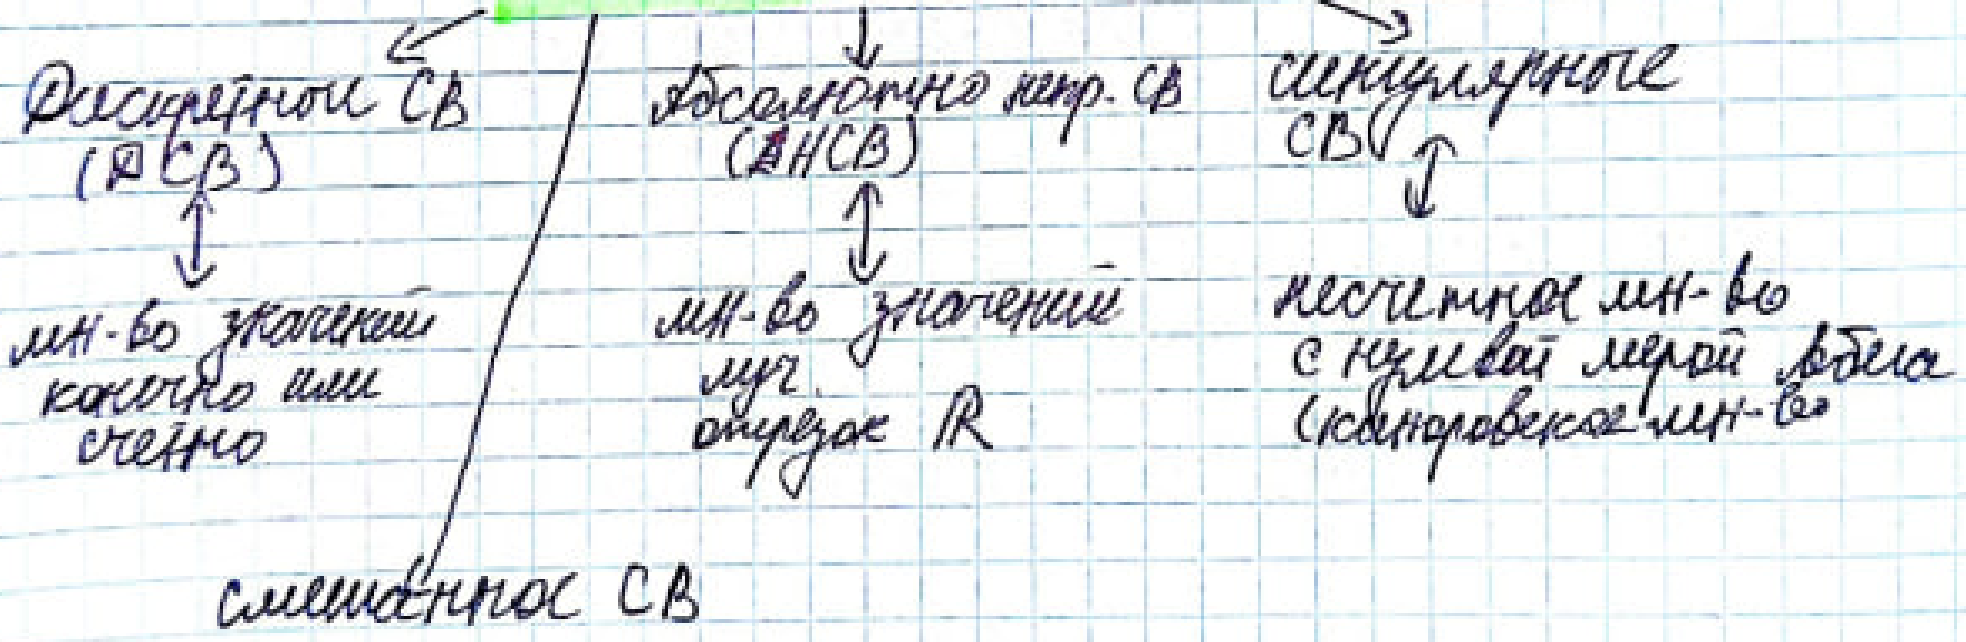 Дискретные СВ
(ДСВ)
мн-во значений
конечно или
счетно
Абсолютно непр. СВ
(АНСВ)
мн-во значений
луч,
отрезок ℝ
сингулярные
СВ
несчетное мн-во
с нулевой мерой Лебега
(канторовское мн-во
смешанное СВ